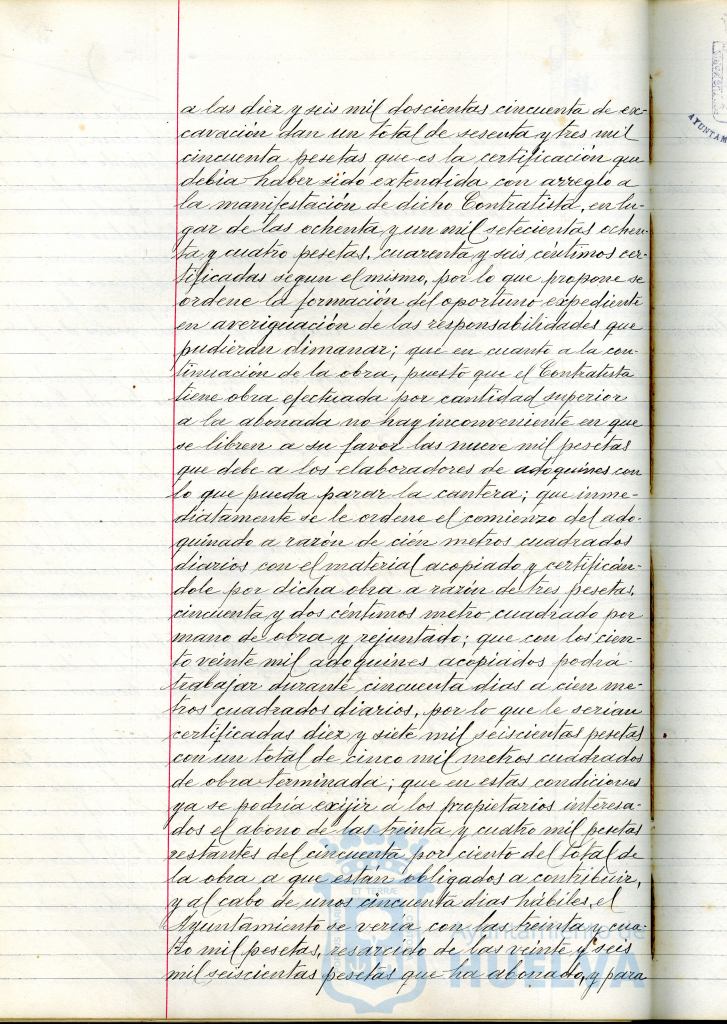 a las diez y seis mil doscientas cincuenta de ex-
cavación dan un total de sesenta y tres mil
cincuenta pesetas que es la certificación que
debia haber sido extendida con arreglo a
la manifestación de dicho Contratista, en lu-
gar de las ochenta y un mil setecientas ochen-
ta y cuatro pesetas, cuarenta y seis céntimos cer-
tificadas segun el mismo, por lo que propone se
ordene la formación del oportuno expediente
en averiguación de las responsabilidades que
pudieran dimanar; que en cuanto a la con-
tinuación de la obra, puesto que el Contratista
tiene obra efectuada por cantidad superior
a la abonada no hay inconveniente en que
se libren a su favor las nueve mil pesetas
que debe a los elaboradores de adoquines con
lo que pueda parar la cantera; que inme-
diatamente se le ordene el comienzo del ado-
quinado a razón de cién metros cuadrados
diarios con el material acopiado y certificán-
dole por dicha obra a razón de tres pesetas,
cincuenta y dos céntimos metro cuadrado por
mano de obra y rejuntado; que con los cien-
to veinte mil adoquines acopiados podrá
trabajar durante cincuenta dias a cien me-
tros cuadrados diarios, por lo que le serian
certificadas diez y siete mil seiscientas pesetas
con un total de cinco mil metros cuadrados
de obra terminada; que en estas condiciones
ya se podria exijir a los propietarios interesa-
dos el abono de las treinta y cuatro mil pesetas
restantes del cincuenta por ciento del total de
la obra a que están obligados a contribuir,
y al cabo de unos cincuenta dias hábiles, el
Ayuntamiento se veria con las treinta y cua-
tro mil pesetas, resarcido de las veinte y seis
mil seiscientas pesetas que ha abonado, y para
ET TERRAE
Ayuntamiento de
HUELVA
AYUNTAM